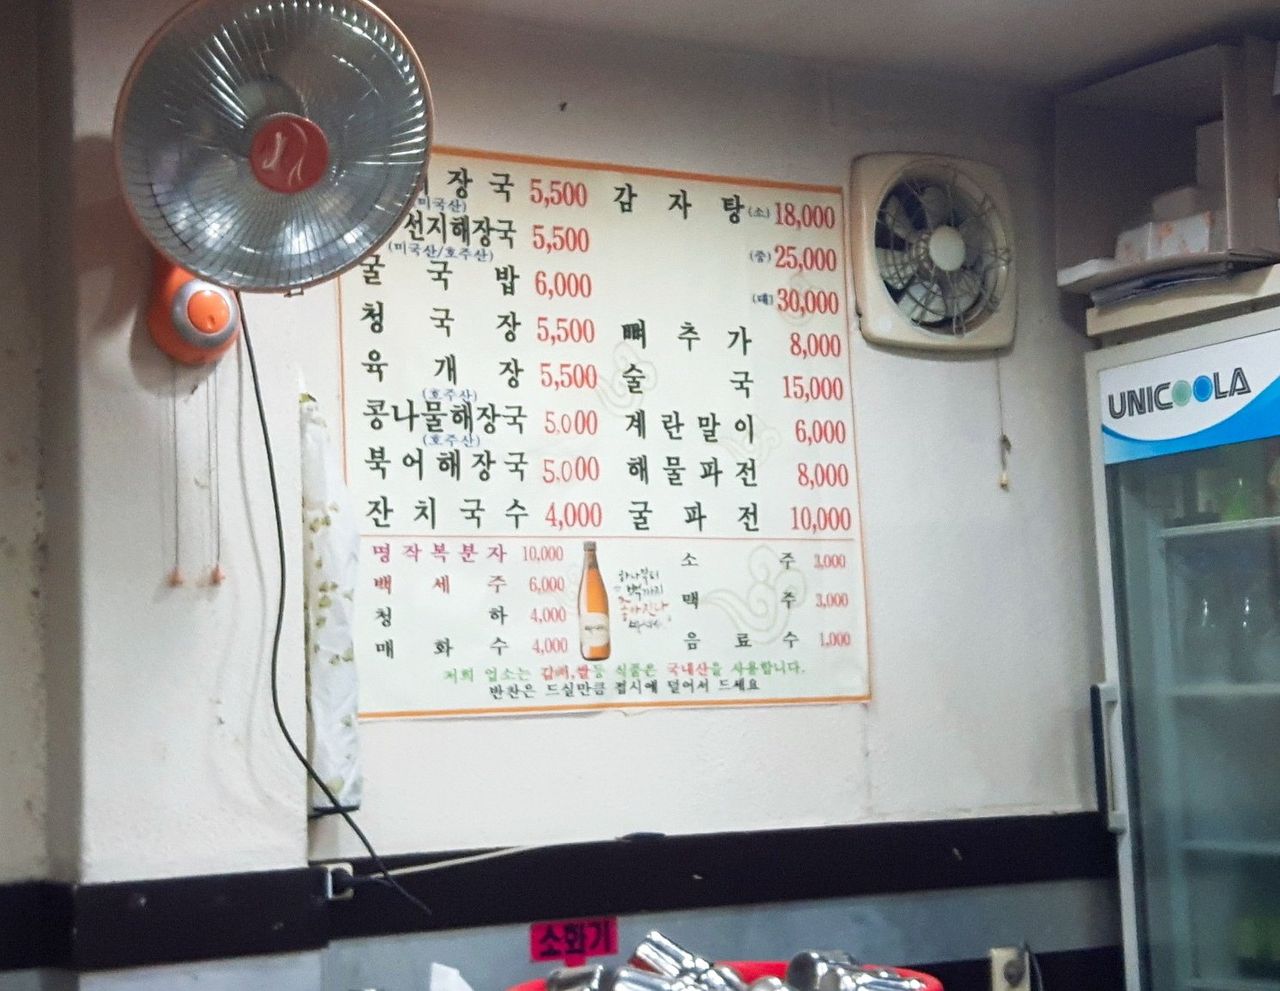 장국 5,500
(미국산)
선지해장국 5,500
(미국산/호주산)
굴국밥 6,000
청국장 5,500
육개장 5,500
(호주산)
콩나물해장국 5,000
(호주산)
북어해장국 5,000
잔치국수 4,000
감자탕 (소) 18,000
(중) 25,000
(대) 30,000
뼈추가 8,000
술국 15,000
계란말이 6,000
해물파전 8,000
굴파전 10,000
명작복분자 10,000
백세주 6,000
청하 4,000
매화수 4,000
소주 3,000
맥주 3,000
음료수 1,000
저희 업소는 갈뼈,쌀등 식품은 국내산을 사용합니다.
반찬은 드실만큼 접시에 덜어서 드세요
UNICOOLA
소화기